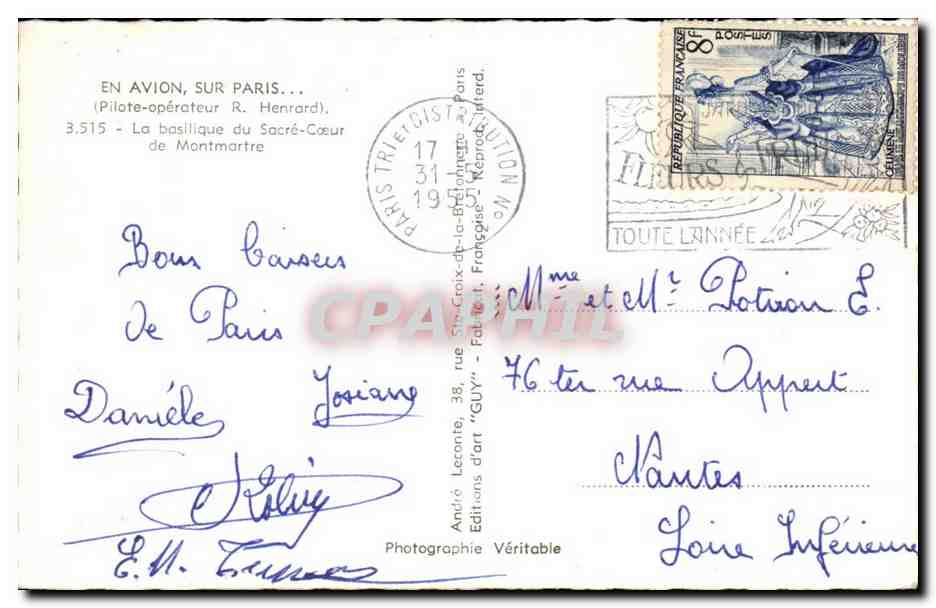 EN AVION, SUR PARIS...
(Pilote-opérateur R. Henrard).
3.515 - La basilique du Sacré-Cœur
de Montmartre
PARIS TRI ET DISTRIBUTION No
17
31 - 5
1955
8F
POSTES
RÉPUBLIQUE FRANÇAISE
CELIMÈNE
FLEURS &
TOUTE L'ANNÉE
Bons baisers
de Paris
Danièle
Josiane
E.M.
André Leconte, 38, rue Ste-Croix-de-la-Bretonnerie, Paris
Editions d'art "GUY" - Fabricat. Française - Reprod. interd.
Photographie Véritable
Mme et Mr Potiron E.
76 ter rue Appert
Nantes
Loire Inférieure
CPAPHIL